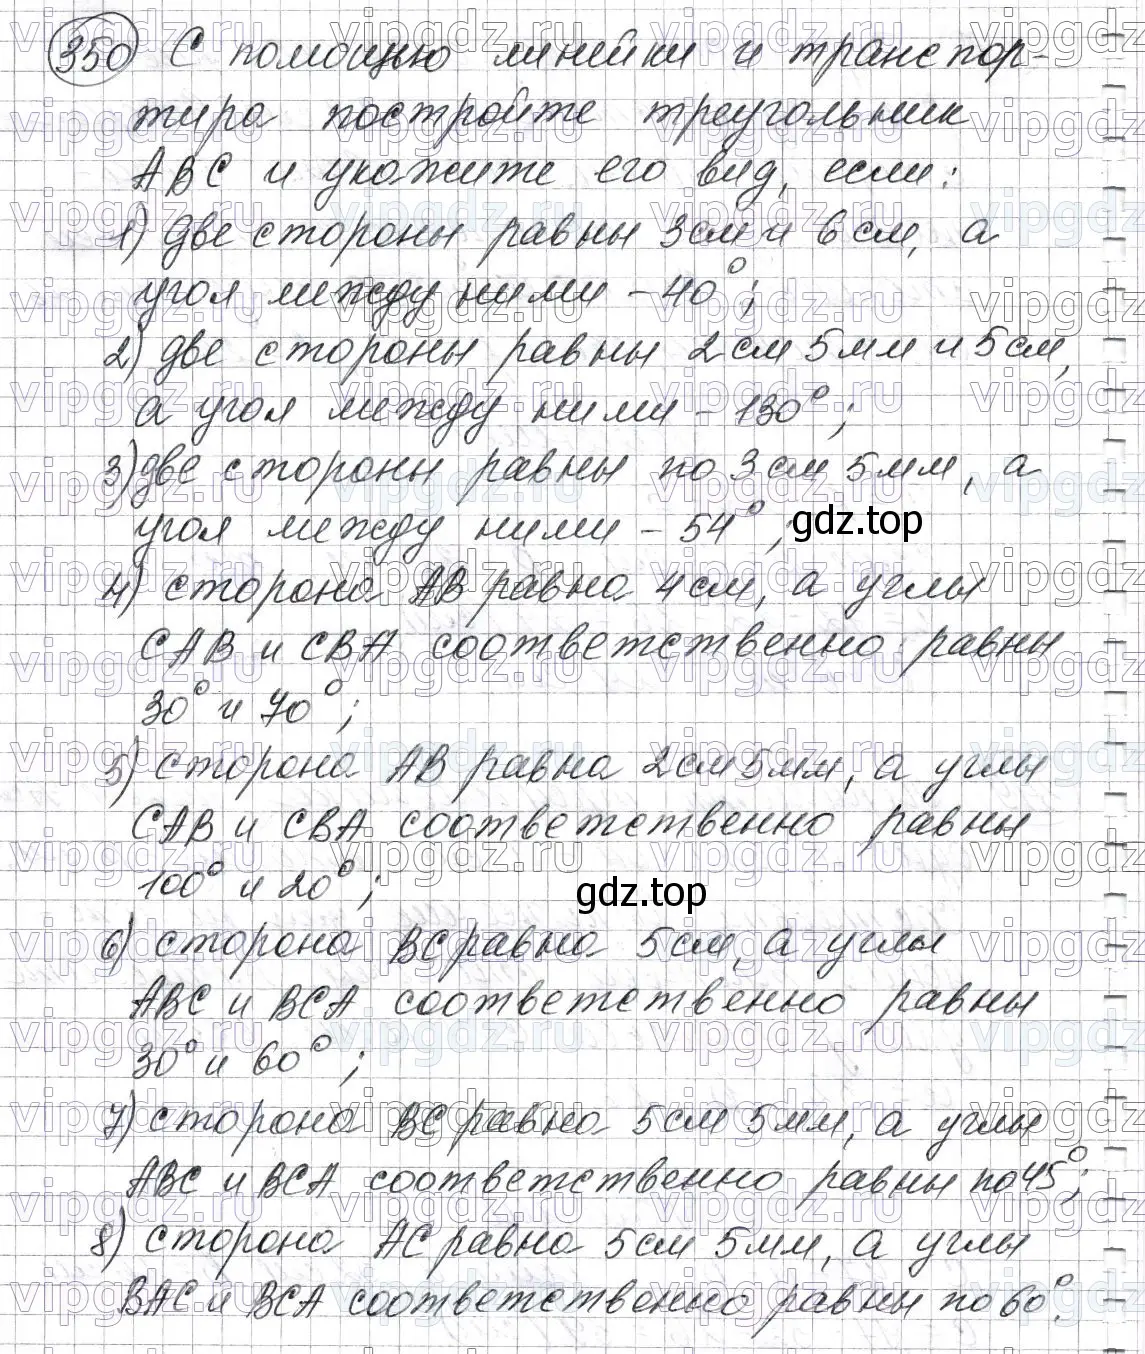 350 С помощью линейки и транспор-
тира постройте треугольник
ABC и укажите его вид, если:
1) две стороны равны 3 см и 6 см, а
угол между ними – 40°;
2) две стороны равны 2 см 5 мм и 5 см,
а угол между ними – 130°;
3) две стороны равны по 3 см 5 мм, а
угол между ними – 54°;
gdz.top
4) сторона AB равна 4 см, а углы
CAB и CBA соответственно равны
30° и 70°;
5) сторона AB равна 2 см 5 мм, а углы
CAB и CBA соответственно равны
100° и 20°;
gdz.top
6) сторона BC равна 5 см, а углы
ABC и BCA соответственно равны
30° и 60°;
7) сторона BC равна 5 см 5 мм, а углы
ABC и BCA соответственно равны по 45°;
8) сторона AC равна 5 см 5 мм, а углы
BAC и BCA соответственно равны по 60°.